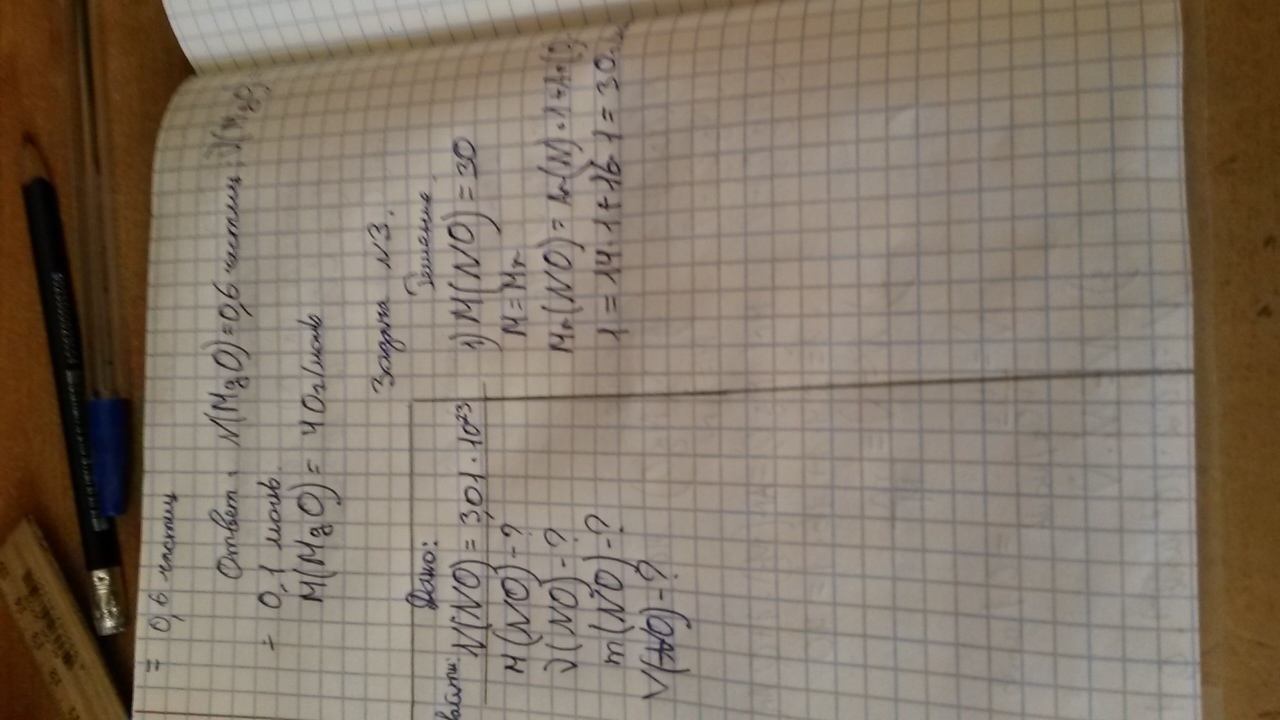 = 0,6 частиц
Ответ: N(MgO)=0,6 частиц; ν(MgO)
= 0,1 моль.
M(MgO) = 40 г/моль
Задача №3.
Дано:
N(NO) = 3,01·10²³
M(NO)-?
ν(NO)-?
m(NO)-?
V(NO)-?
Решение
1) M(NO) = 30
M=Mr
Mr(NO) = Ar(N)·1+Ar(O)·
1 = 14·1+16·1=30